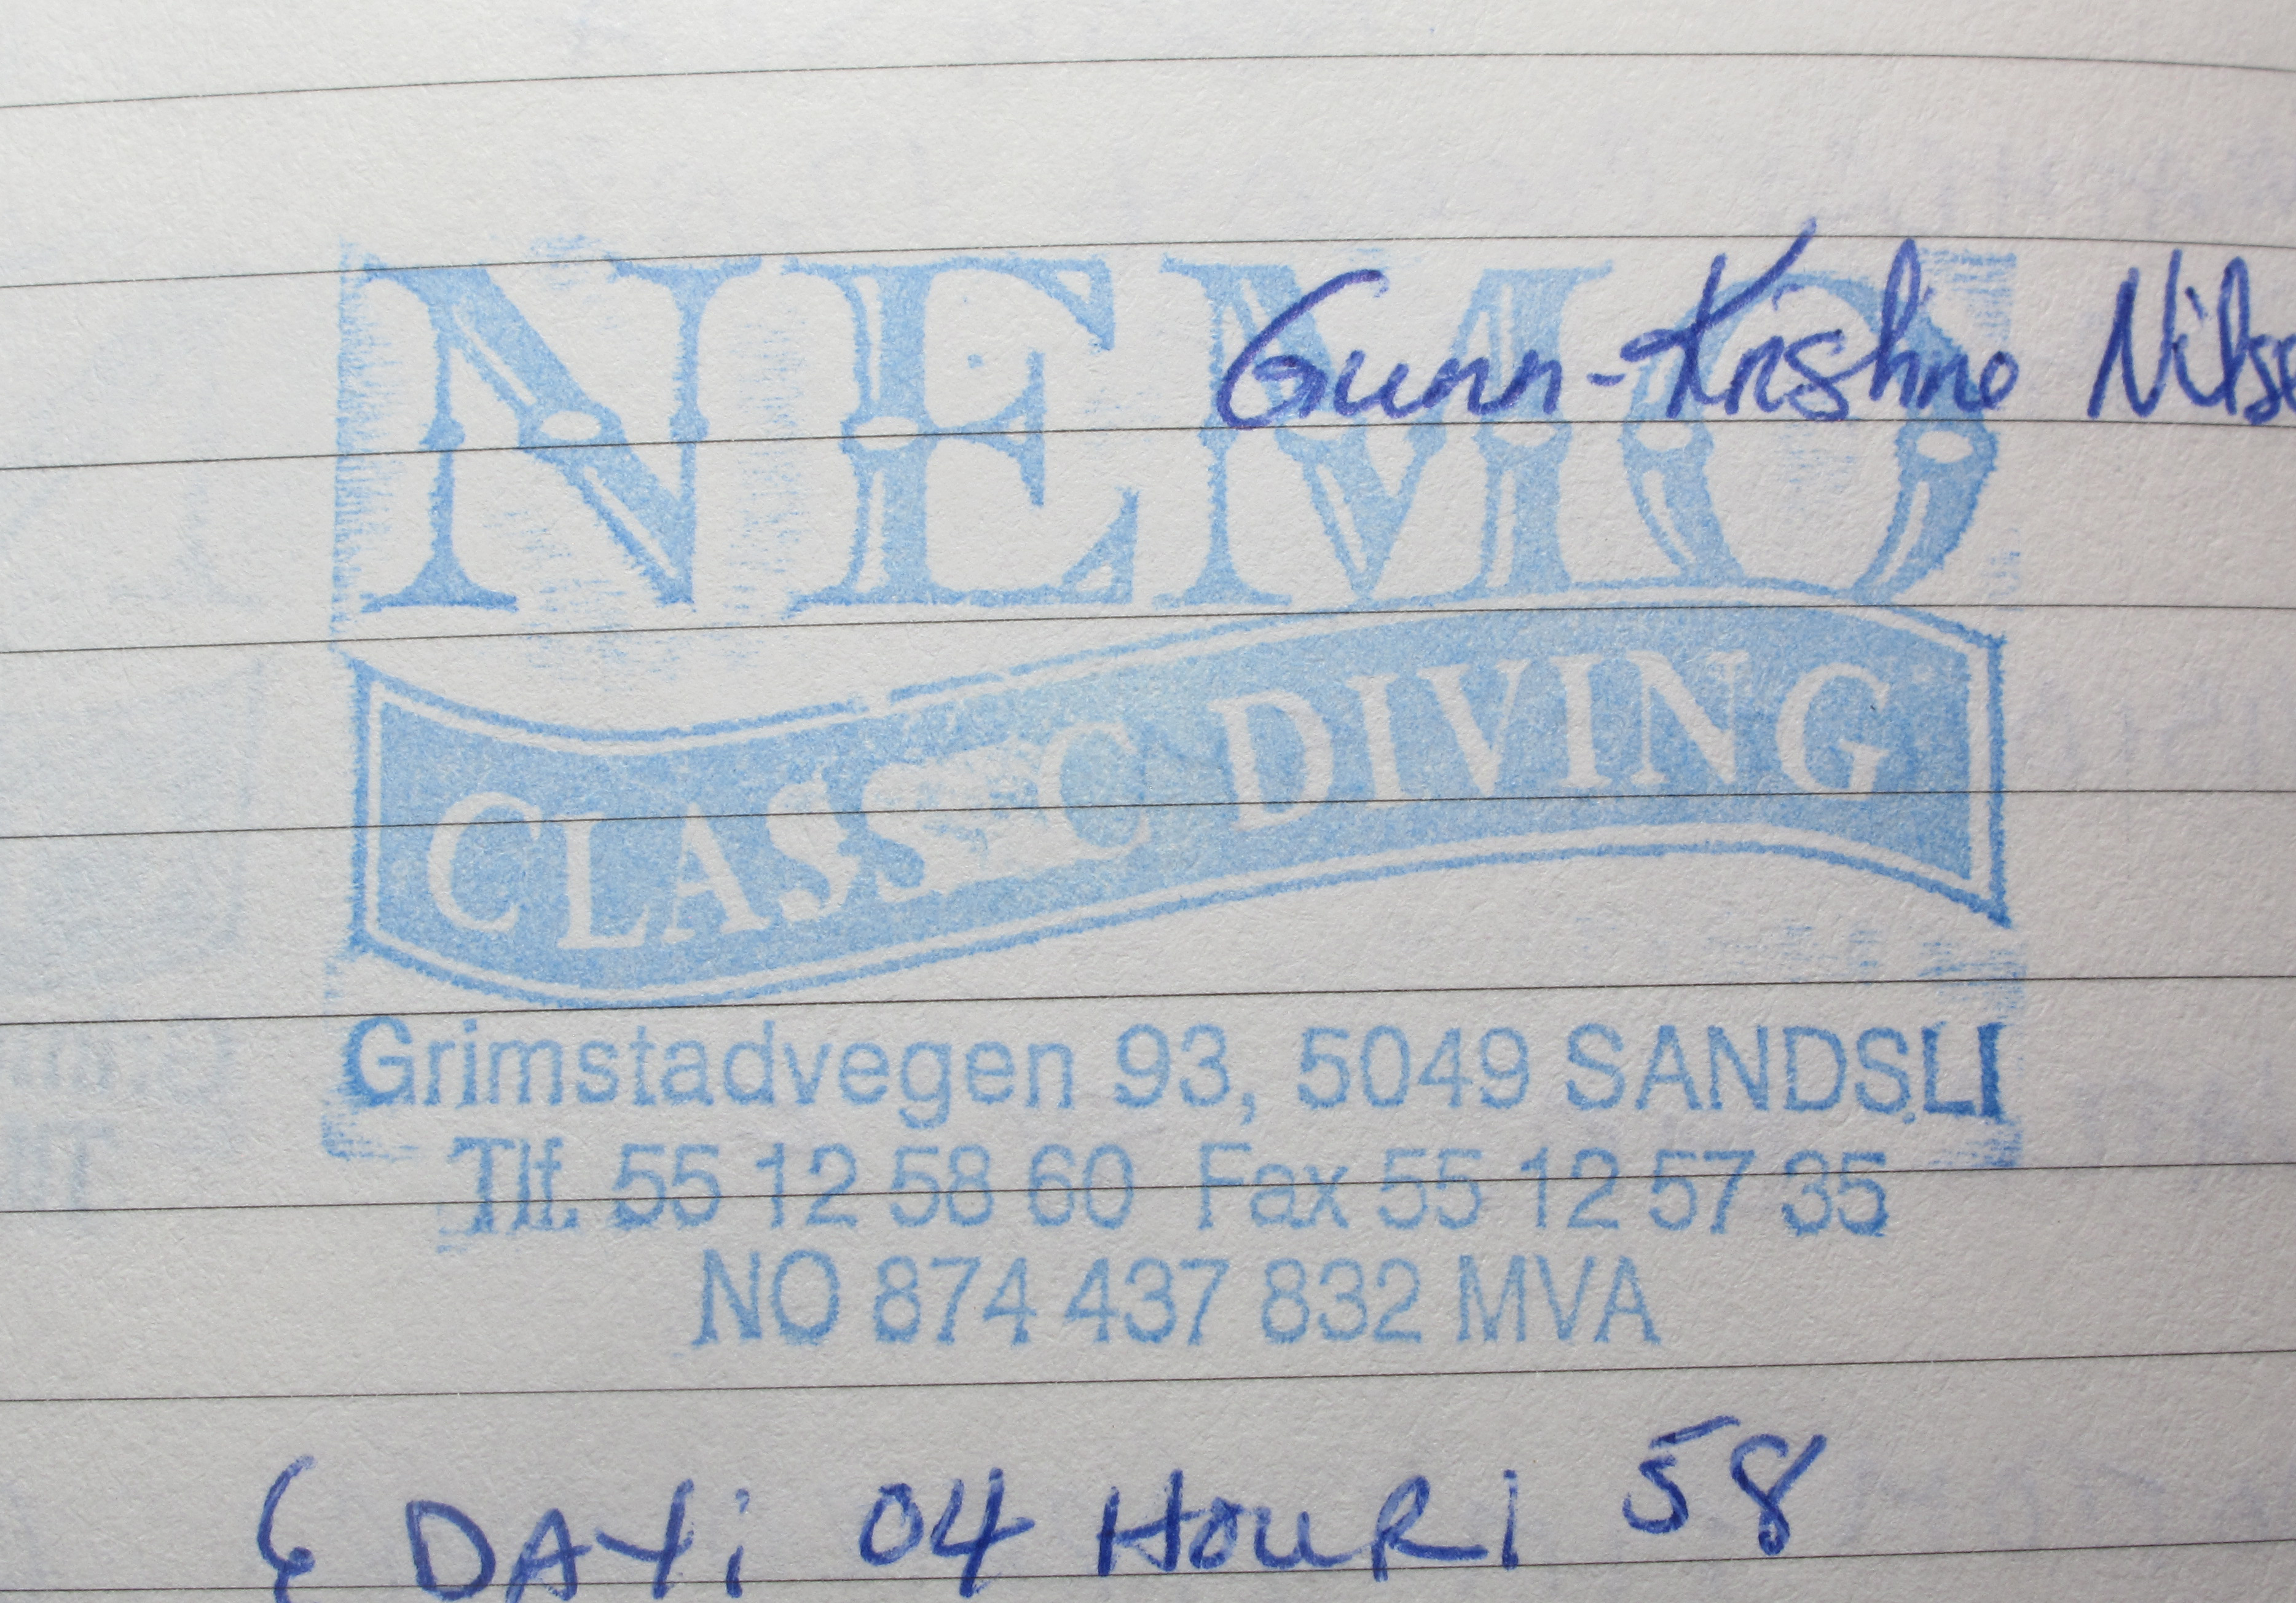 NEMO
Gunn-Kristine
CLASSIC DIVING
Grimstadvegen 93, 5049 SANDSLI
Tlf. 55 12 58 60 Fax 55 12 57 35
NO 874 437 832 MVA
04 58